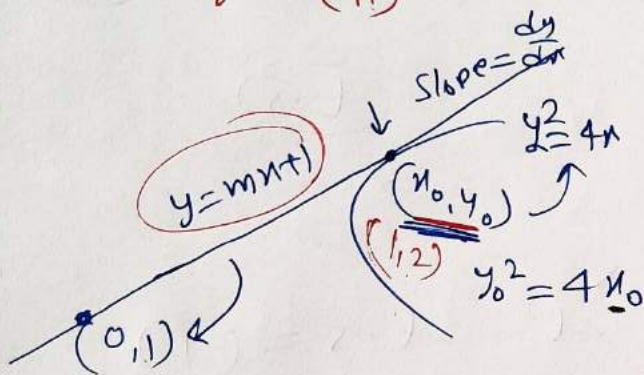 (1,1)
Slope = dy/dx
y = mx+1
y² = 4x
(x₀, y₀)
(1,2)
y₀² = 4x₀
(0,1)